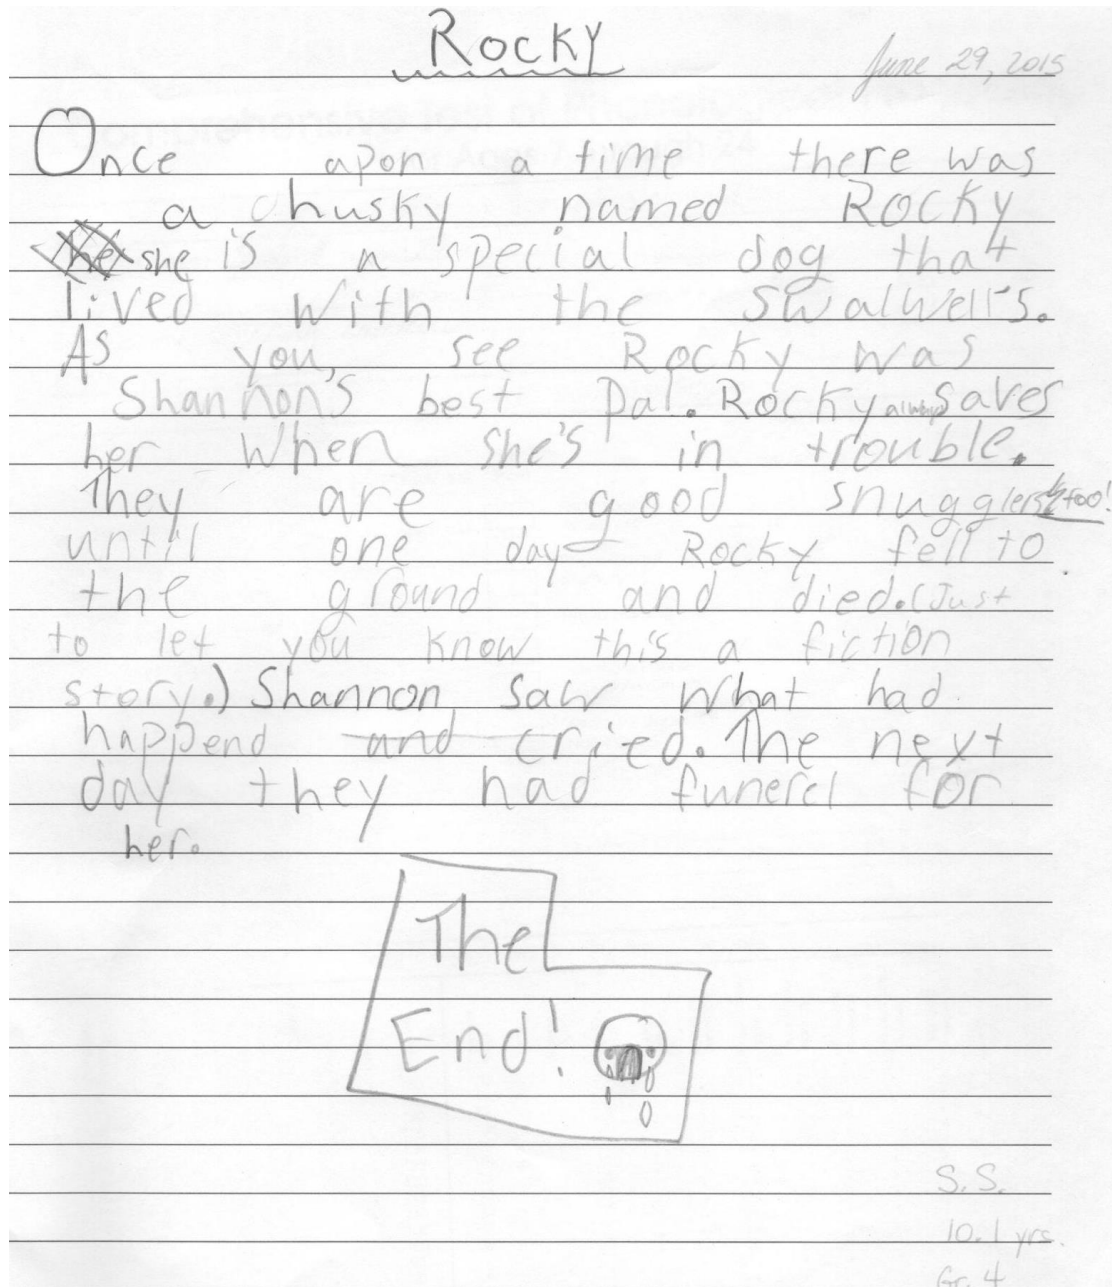 Rocky
June 29, 2015
Once apon a time there was
a husky named Rocky
she is a special dog that
lived with the Swalwell's.
As you, see Rocky was
Shannon's best pal. Rocky always saves
her when she's in trouble.
They are good snugglers too!
until one day Rocky fell to
the ground and died. (Just
to let you know this a fiction
story.) Shannon saw what had
happend and cried. The next
day they had funerel for
her.
The
End!
S.S.
10.1 yrs.
Gr. 4